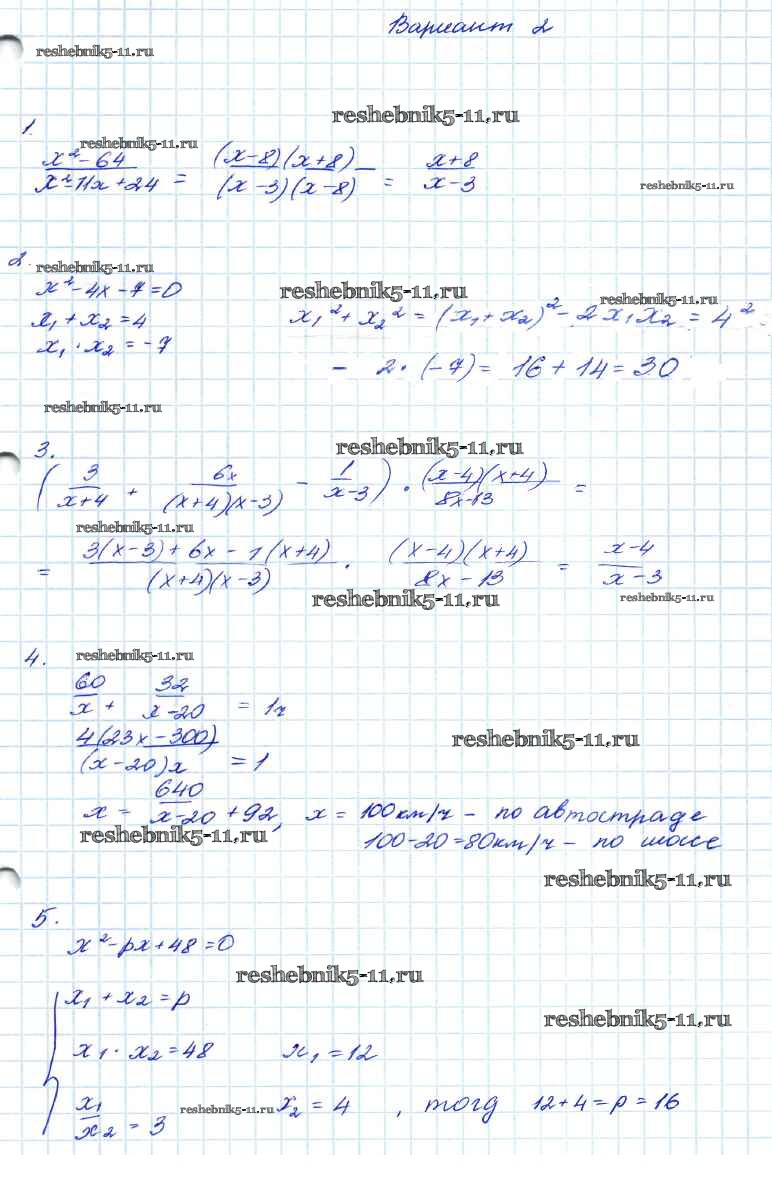 Вариант 2
reshebnik5-11.ru
reshebnik5-11.ru
1.
reshebnik5-11.ru
x² - 64 / x² - 11x + 24 = (x-8)(x+8) / (x-3)(x-8) = x+8 / x-3
reshebnik5-11.ru
2. reshebnik5-11.ru
x² - 4x - 7 = 0
reshebnik5-11.ru
reshebnik5-11.ru
x₁ + x₂ = 4
x₁² + x₂² = (x₁ + x₂)² - 2x₁x₂ = 4²
x₁ · x₂ = -7
- 2 · (-7) = 16 + 14 = 30
reshebnik5-11.ru
3.
reshebnik5-11.ru
(3 / x+4 + 6x / (x+4)(x-3) - 1 / x-3) · (x-4)(x+4) / 8x-13 =
reshebnik5-11.ru
= 3(x-3) + 6x - 1(x+4) / (x+4)(x-3) · (x-4)(x+4) / 8x-13 = x-4 / x-3
reshebnik5-11.ru
reshebnik5-11.ru
4. reshebnik5-11.ru
60 / x + 32 / x-20 = 1ч
4(23x-300) / (x-20)x = 1
reshebnik5-11.ru
x = 640 / x-20 + 92, x = 100км/ч - по автостраде
reshebnik5-11.ru
100-20=80км/ч - по шоссе
reshebnik5-11.ru
5.
x² - px + 48 = 0
reshebnik5-11.ru
{ x₁ + x₂ = p
reshebnik5-11.ru
x₁ · x₂ = 48 x₁ = 12
x₁ / x₂ = 3 reshebnik5-11.ru x₂ = 4, тогд 12+4=p=16